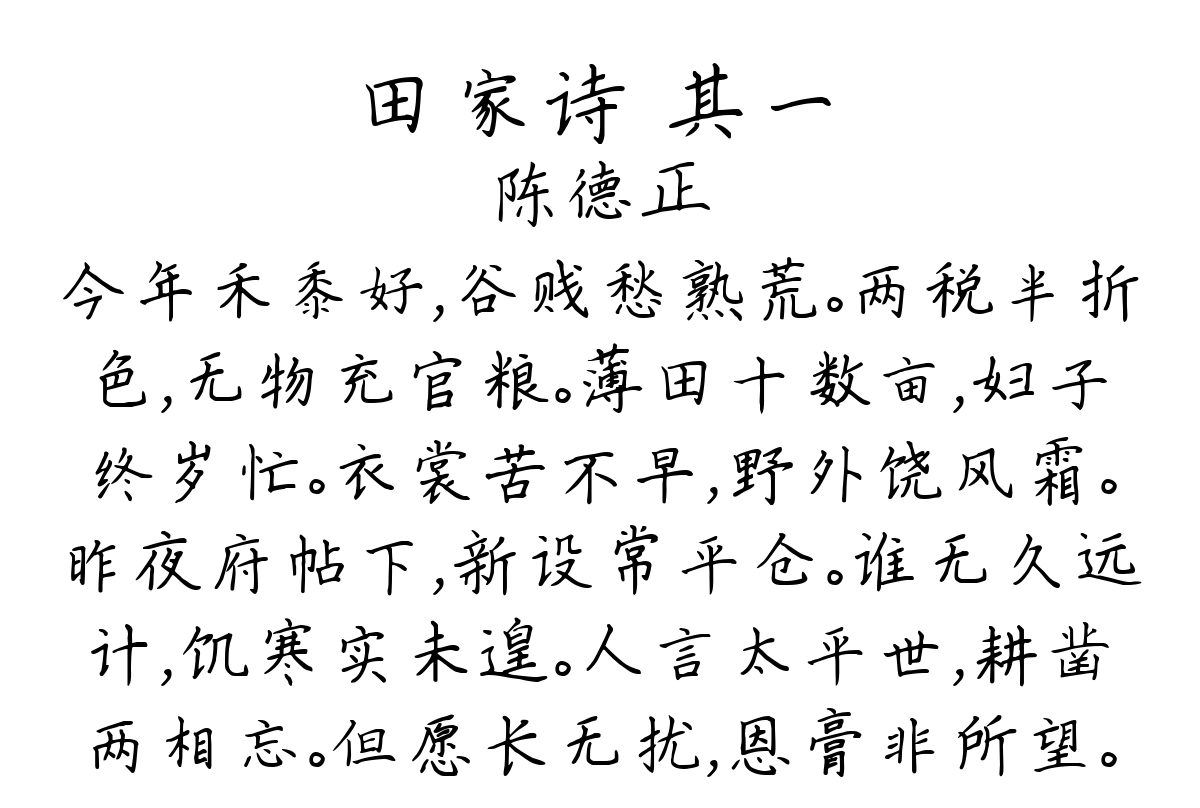 田家诗 其一
陈德正
今年禾黍好,谷贱愁熟荒。两税半折
色,无物充官粮。薄田十数亩,妇子
终岁忙。衣裳苦不早,野外饶风霜。
昨夜府帖下,新设常平仓。谁无久远
计,饥寒实未遑。人言太平世,耕凿
两相忘。但愿长无扰,恩膏非所望。